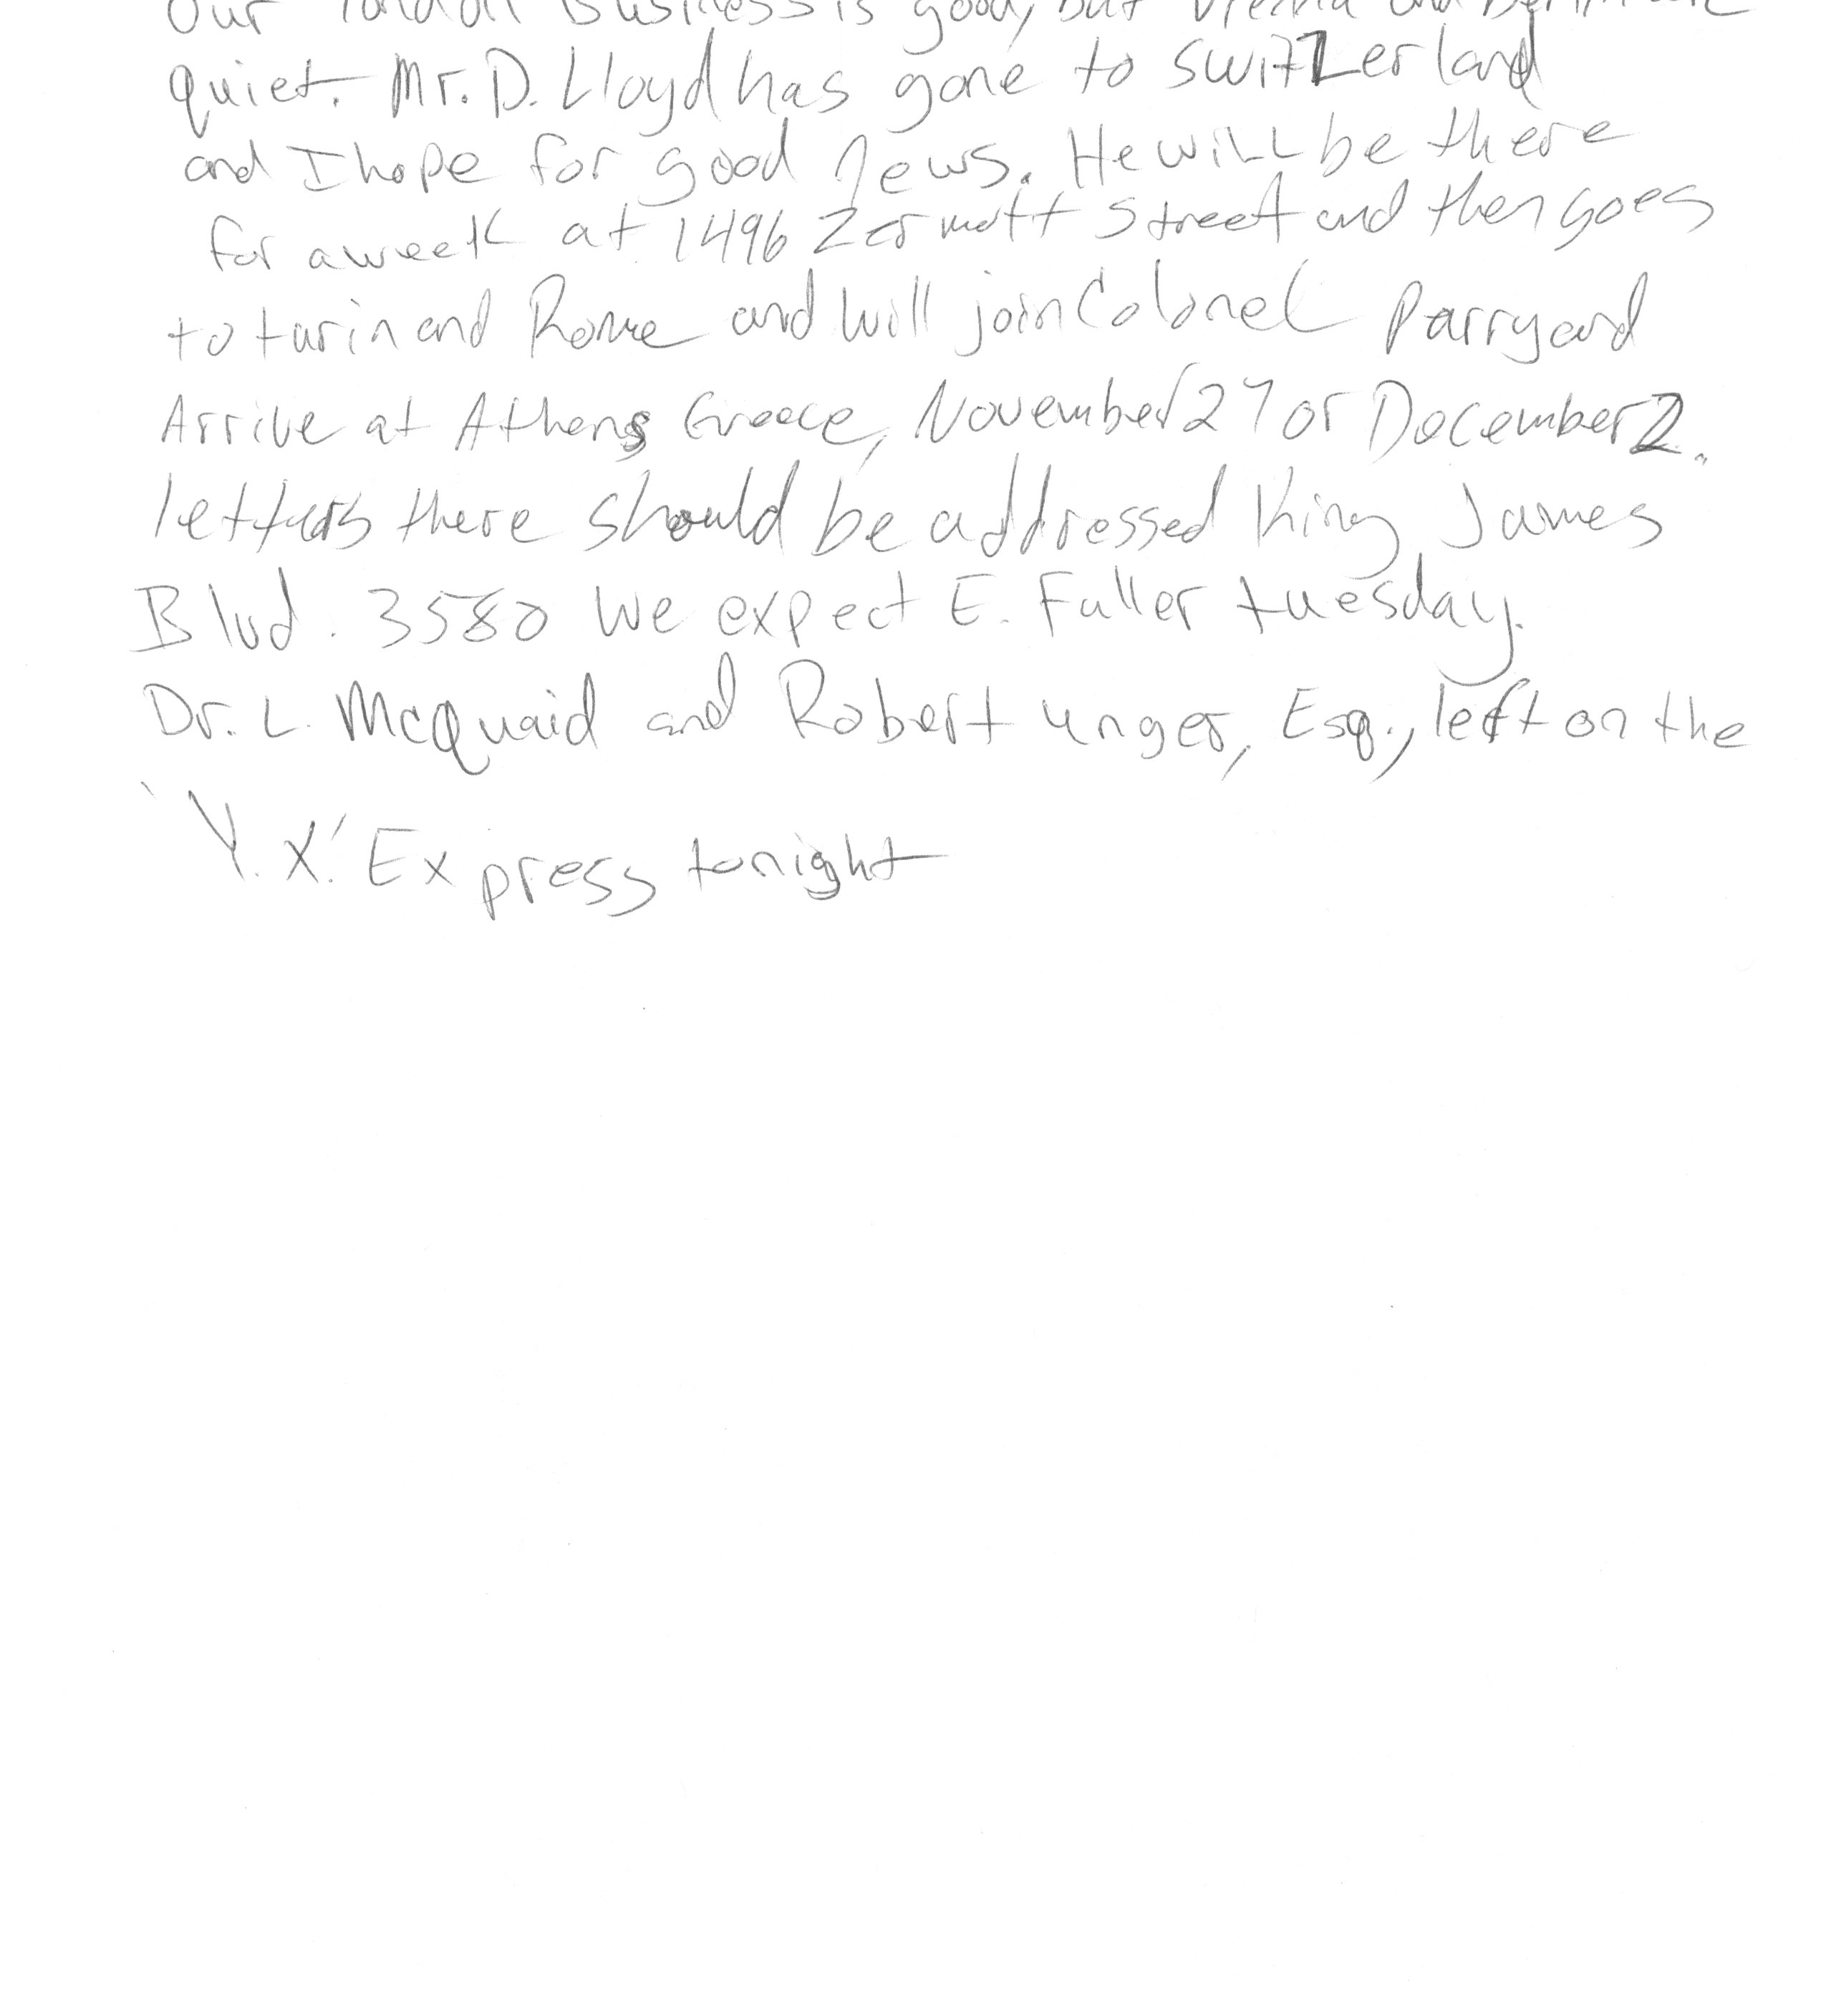 Our london Business is good, but Vienna and Berlin are
quiet. Mr. D. Lloyd has gone to switzerland
and I hope for good news. He will be there
for a week at 1496 Zermott Street and then goes
to turin and Rome and will join Colonel Parry and
Arrive at Athens Greece, November 27 or December 2.
letters there should be addressed King James
Blvd. 3580 We expect E. Fuller tuesday.
Dr. L. McQuaid and Robert unger, Esq., left on the
'Y.X.' Express tonight